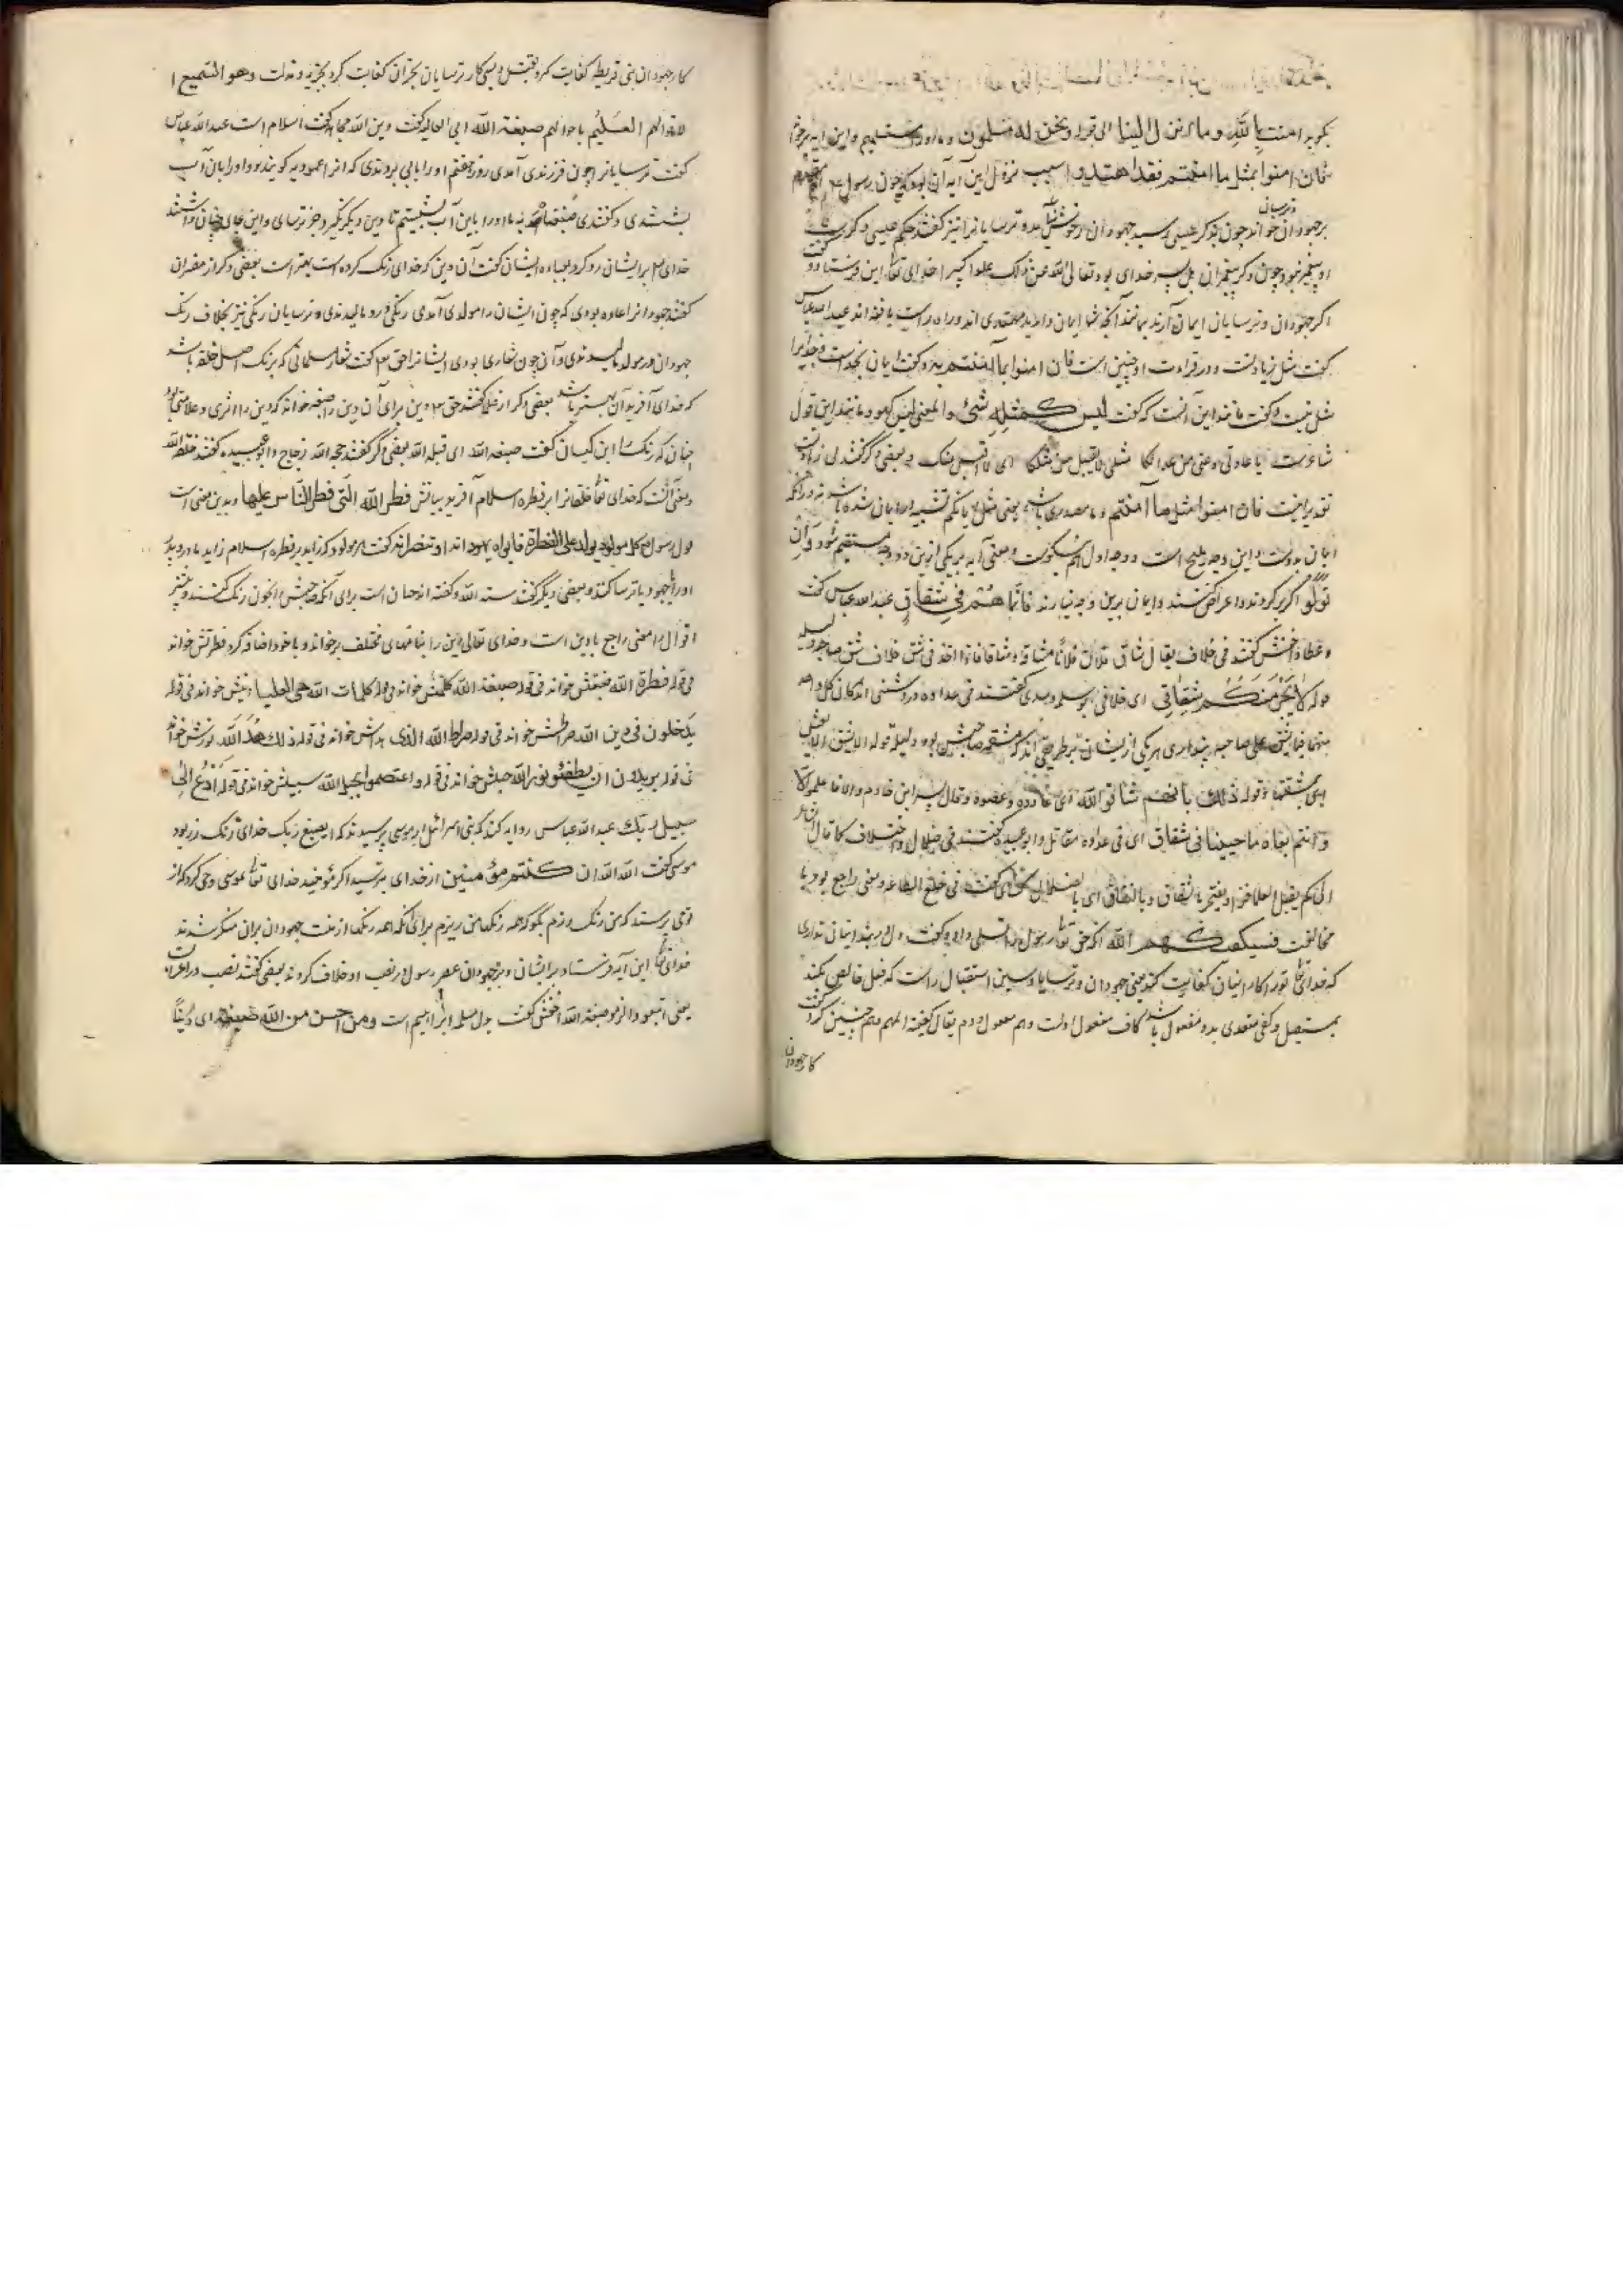 بکویرا منت بالله وما انزل الینا الی قوله ونحن له مسلمون و ما اورا مستسلمیم و این ایه برخواند
فان امنوا بمثل ما امنتم فقد اهتدوا سبب نزول این آیه آن بود که چون رسول
بر جهودان و ترسایان خواند چون بذکر عیسی رسید جهودان را خوش نیامد و ترسایان نیز کفتند حکم عیسی
او پیغمبر نبود چون دکر پیغمبران بل پسر خدای بود تعالی الله عن ذلک علوا کبیرا خدای تعا این فرستاد و گفت
اکر جهودان و ترسایان ایمان آرند بمانند آنکه شما ایمان دارید مهتدی اند و راه راست یافته اند عبد الله عباس
کفت مثل زیادتست و در قراءت او چنین است فان امنوا بما امنتم به و کفت ایمان بخداست و خدایرا
مثل نیست و کفت مانند این آنست که کفت لیس کمثله شئ والمعنی لیس کهو و مانند این قول
شاعرست یا عاذلی دعنی من عذلکا مثلی لا یقبل من مثلکا ای انا لا اقبل منک و بعضی دکر کفتند
تقدیر اینست فان امنوا مثل ما آمنتم و ما مصدری باشد یعنی مثل ایمانکم تشبیه ایمان شده باشد نه در آنکه
ایمان بدوست و این وجه ملیح است و وجه اول هم نیکوست و معنی آیه بر یکی ازین دو وجه مستقیم شود و ان
تولوا اکر برکردند و اعراض کنند و ایمان برین وجه نیارند فانما هم فی شقاق عبد الله عباس کفت
و عطا و اخفش کفتند فی خلاف یقال شاق فلان فلانا مشاقة و شقاقا اذا اخذ فی شق خلاف شق صاحبه دلیله
قوله لا یجرمنکم شقاقی ای خلافی ابو سلمه و سدی کفتند فی عداوة در دشمنی اند کان کل واحد
منهما یشق علی صاحبه پنداری هر یکی ازیشان بر طریقی اند که مشقه صاحبش بود دلیله قوله الا بشق الانفس
ای بمشقتها و قوله ذلک بانهم شاقوا الله ای عادوه و عصوه و قال بشر ابن خازم والا فاعلموا انا
و انتم بغاة ما حیینا فی شقاق ای فی عداوة مقاتل و ابو عبیده کفتند فی ضلال و اختلاف کما قال الشاعر
الی کم یقتل العلما قسرا و یفتخر بالشقاق و بالنفاق ای بالضلال کسای کفت فی خلع الطاعه و معنی راجع بود با
مخالفت فسیکفیکهم الله انکه حق تعا رسول را تسلی داد و کفت دل در بند ایشان نداری
که خدای تعا تو را کار ایشان کفایت کند یعنی جهودان و ترسایان و سین استقبال راست که فعل خالص بکند
بمستقبل و کفی متعدی بدو مفعول باشد کاف مفعول اولست و هم مفعول دوم یقال کفیته المهم و هم چنین کرد کفت
کار جهودان
کار جهودان بنی قریظه کفایت کرد بقتل و سبی کار ترسایان نجران کفایت کرد بجزیه و مذلت و هو السمیع
لاقوالهم العلیم باحوالهم صبغة الله ابو العالیه کفت دین الله مجاهد کفت اسلام است عبد الله عباس
کفت ترسایانرا چون فرزندی آمدی روز هفتم او را بآبی بردندی که انرا عمودیه کویند و او را بان آب
بشستندی و کفتندی صبغناه به ما او را باین آب بشستیم تا دین دیکر نگیرد جز ترسای و این بجای ختان داشتند
خدای تعا بر ایشان رد کرد بصباغه ایشان کفت آن دین که خدای رنک کرده است بهتر است بعضی دکر از مفسران
کفتند جهودانرا عادت بودی که چون ایشان را مولودی آمدی رنگی درو مالیدندی و ترسایان رنگی نیز بخلاف رنک
جهودان در مولود مالیدندی و آن چون شعاری بودی ایشانرا حق تعا کفت شعار مسلمانی که بر رنک اصل خلقه باشد
که خدای آفرید آن بهتر باشد بعضی دکر از علما کفتند حق تعا دین برای آن دین را صبغه خواند که دین را اثری و علامتی بود
چنان که رنک را ابن کیسان کفت صبغة الله ای قبلة الله بعضی دکر کفتند حجة الله زجاج و ابو عبیده کفتند خلقة الله
و معنی آنست که خدای تعا خلقانرا بر فطرة اسلام آفرید بیانش فطر الله التی فطر الناس علیها و بدین معنی است
قول رسول کل مولود یولد علی الفطرة فابواه یهودانه او ینصرانه کفت هر مولود که زاید بر فطره اسلام زاید مادر و پدر
او را جهود یا ترسا کنند و بعضی دیگر کفتند سنة الله و کفته اند ختان است برای آنکه صاحبش را بخون رنک کنند و بیشتر
اقوال را معنی راجع با دین است و خدای تعالی دین را بنامهای مختلف برخواند و با خود اضافه کرد فطرتش خواند
فی قوله فطرة الله صبغتش خواند فی قوله صبغة الله کلمتش خواند فی قوله کلمات الله هی العلیا دینش خواند فی قوله
یدخلون فی دین الله صراطش خواند فی قوله صراط الله الذی هداش خواند فی قوله ذلک هدی الله نورش خواند
فی قوله یریدون ان یطفئو نور الله حبلش خواند فی قوله و اعتصموا بحبل الله سبیلش خواند فی قوله ادع الی
سبیل ربک عبد الله عباس روایه کند که بنی اسرائیل از موسی پرسیدند که ایصبغ ربک خدای تو رنک رزد
موسی کفت الله الله ان کنتم مؤمنین از خدای بترسید اکر مؤمنید خدای تعا بموسی وحی کرد که از
تو می پرسند که من رنک رزم بگو که همه رنکها من ریزم برای آنکه همه رنکها از منست جهودان بران منکر شدند
خدای تعا این آیه فرستاد بر ایشان و بر جهودان عصر رسول در نصب او خلاف کردند بعضی کفتند نصب بر اغراست
یعنی اتبعوا و الزموا صبغة الله اخفش کفت بدل ملة ابراهیم است و من احسن من الله صبغة ای دینا